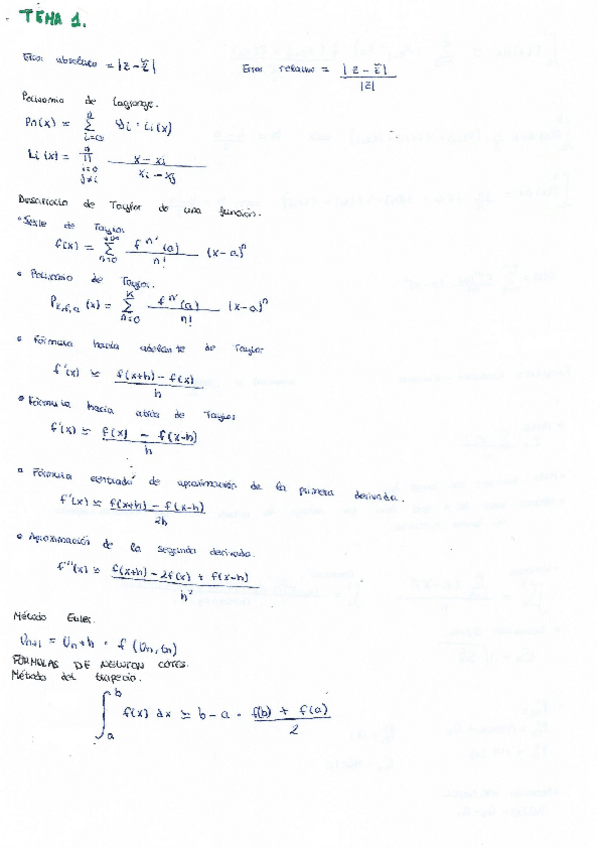 TEMA 1.
Error absoluto = |z - z̃|    Error relativo = |z - z̃| / |z|
Polinomio de Lagrange.
Pn(x) = Σ_{i=0}^{n} yi · Li(x)
Li(x) = Π_{i=0, j≠i}^{n} (x - xi) / (xi - xj)
Desarrollo de Taylor de una función.
• Serie de Taylor
f(x) = Σ_{n=0}^{+∞} f^{n'}(a) / n! (x-a)^n
• Polinomio de Taylor.
P_{k,f,a}(x) = Σ_{n=0}^{k} f^{n'}(a) / n! (x-a)^n
• Fórmula hacia adelante de Taylor
f'(x) ≃ (f(x+h) - f(x)) / h
• Fórmula hacia atrás de Taylor
f'(x) ≃ (f(x) - f(x-h)) / h
• Fórmula centrada de aproximación de la primera derivada.
f'(x) ≃ (f(x+h) - f(x-h)) / 2h
• Aproximación de la segunda derivada.
f''(x) ≃ (f(x+h) - 2f(x) + f(x-h)) / h²
Método Euler.
Un+1 = Un + h · f(Un, tn)
FÓRMULAS DE NEWTON COTES.
Método del trapecio.
∫_a^b f(x) dx ≃ b - a · (f(b) + f(a)) / 2